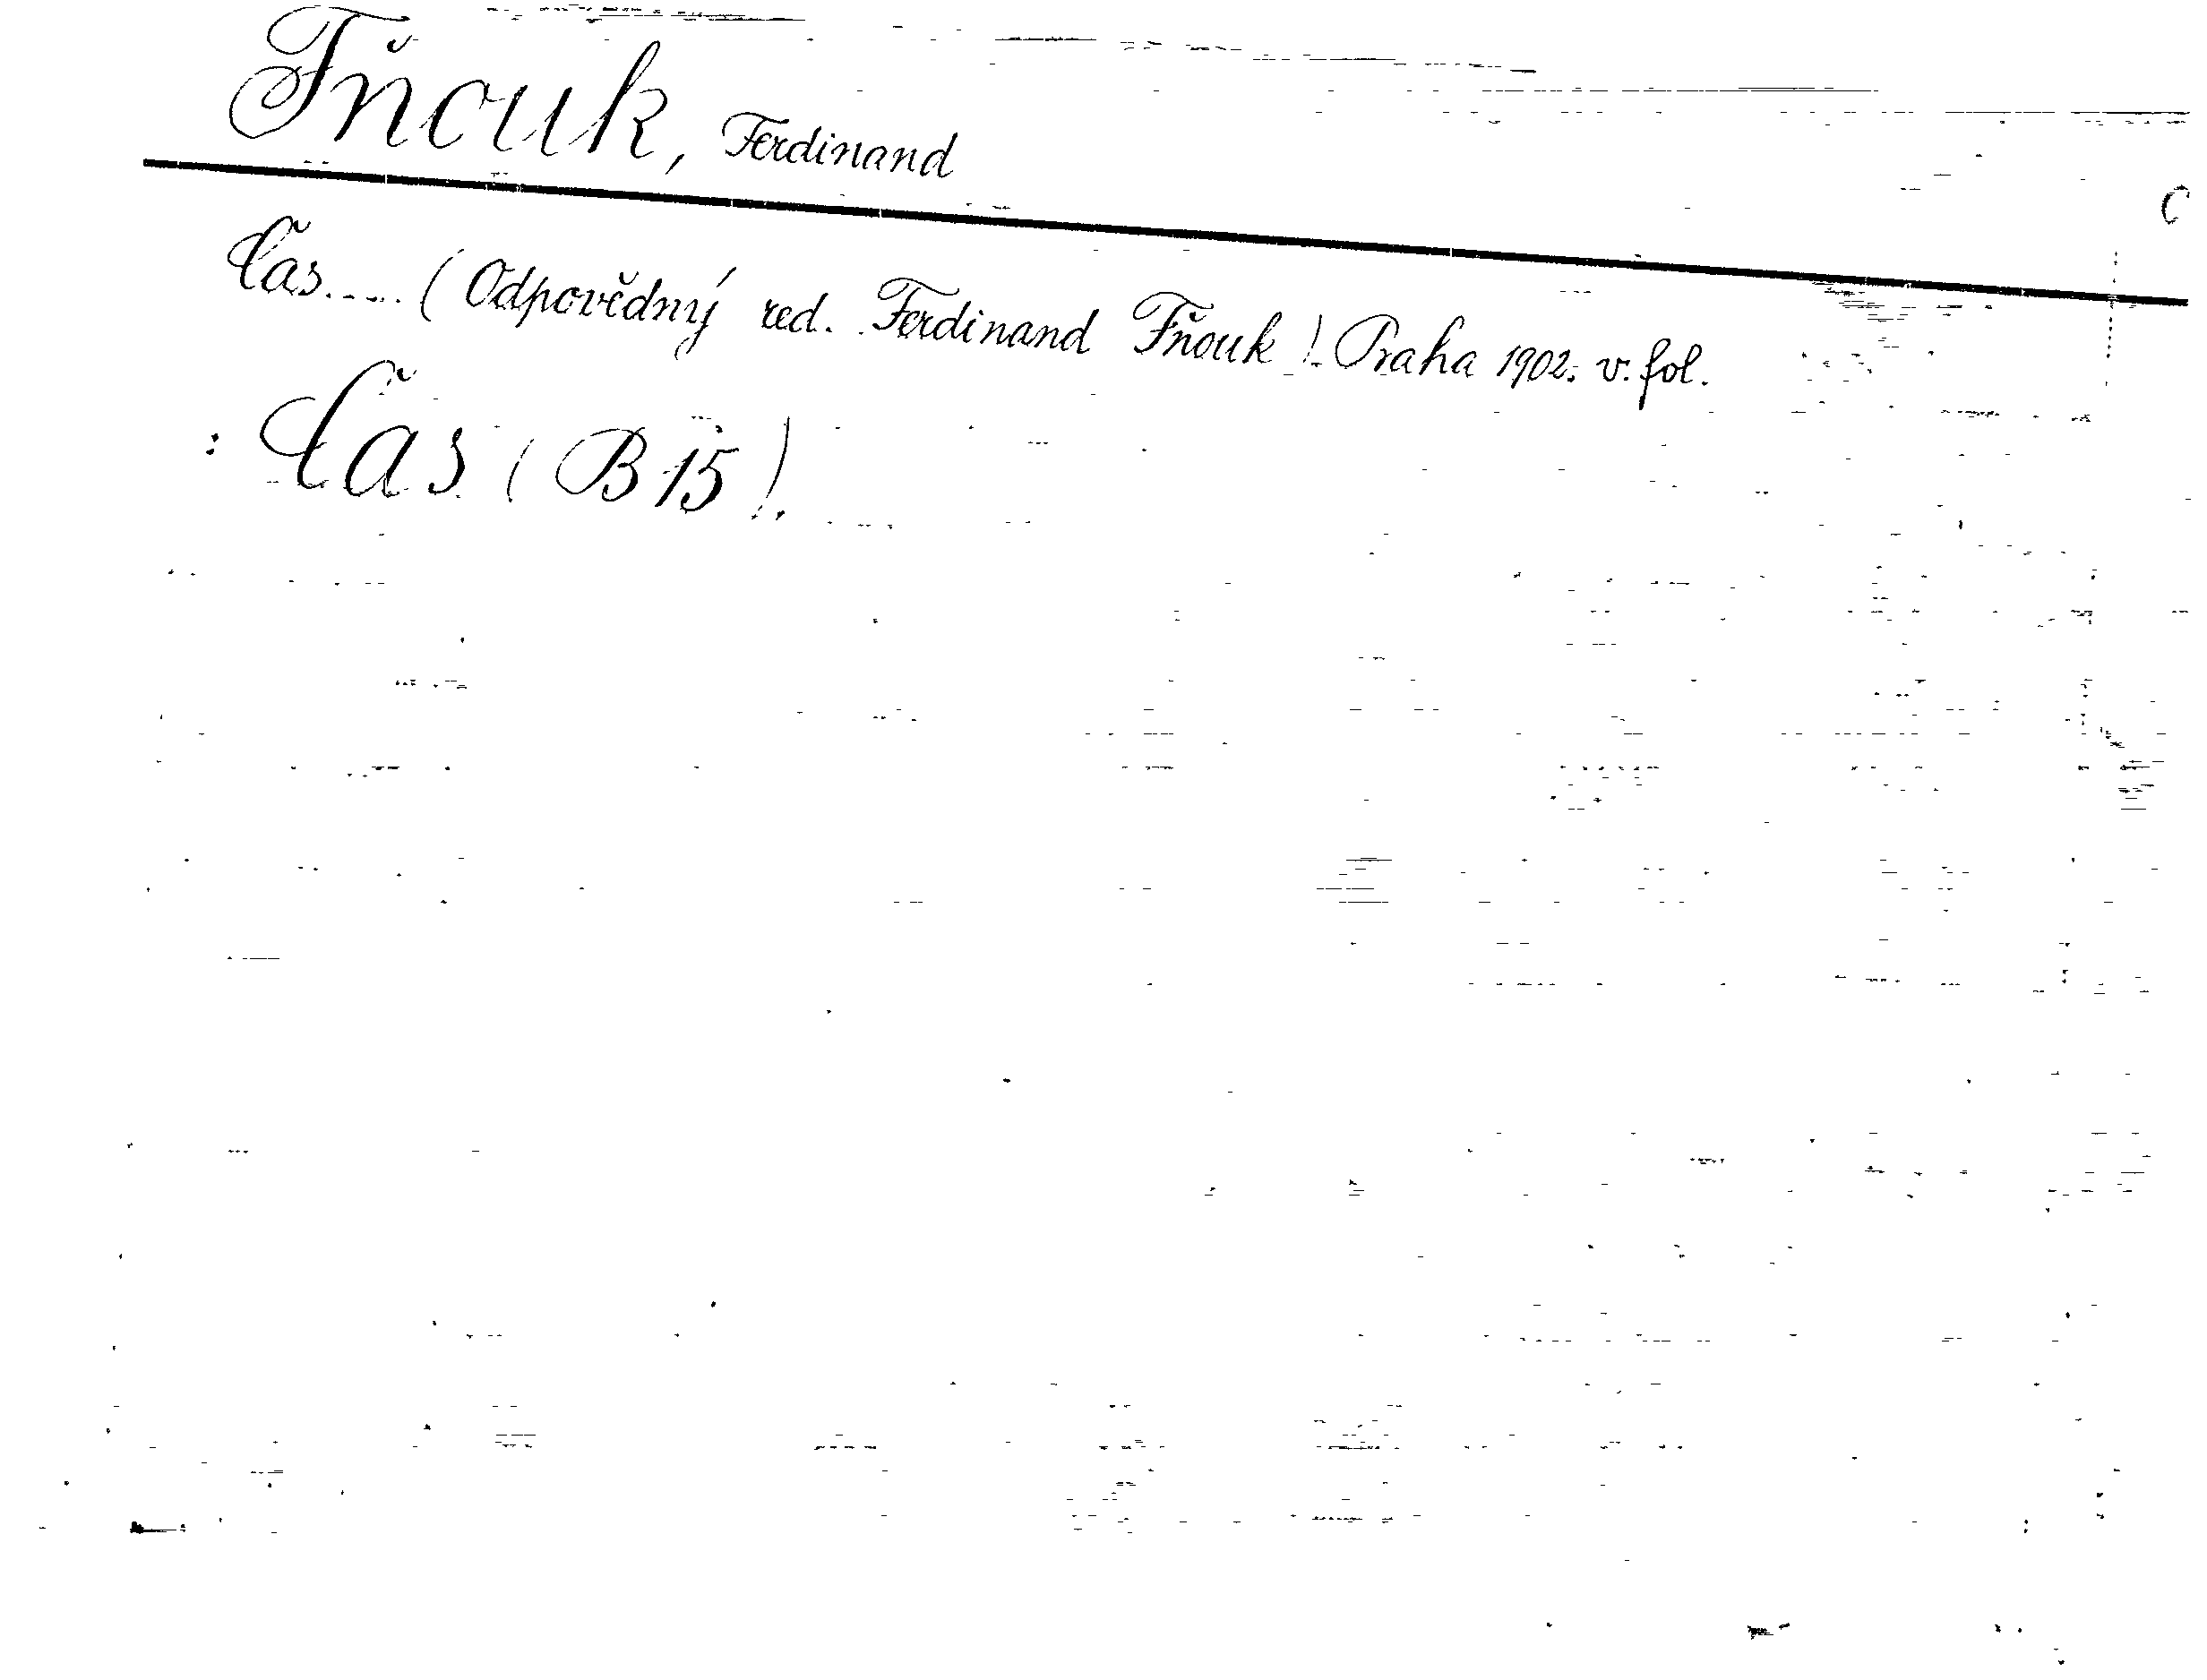 Fňouk, Ferdinand
Čas..... (Odpovědný red. Ferdinand Fňouk). Praha 1902. v. fol.
: Čas (B 15).